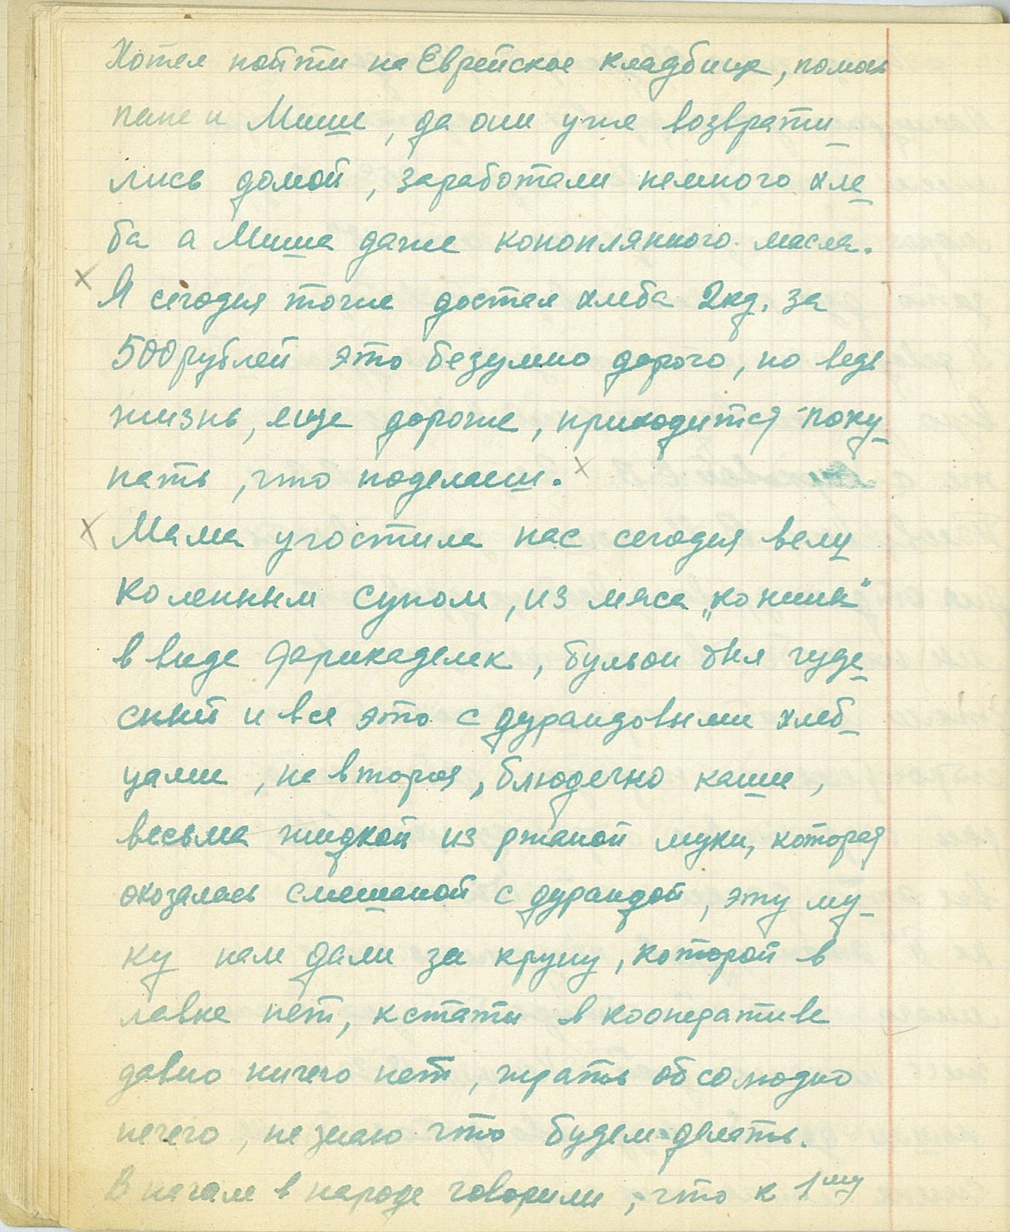 Хотел пойти на Еврейское кладбище, помочь
папе и Мише, да они уже возврати
лись домой, заработали немного хле
ба а Миша даже коноплянного масла.
Я сегодня тоже достал хлеба 2кд. за
500 рублей это безумно дорого, но ведь
жизнь, еще дороже, приходится поку
пать, что поделаеш.
Мама угостила нас сегодня вели
коленным супом, из мяса „конина"
в виде фрикаделек, бульон был чуде
сный и все это с дурандовыми хлеб
цами, на второе, блюдечко каши,
весьма жидкой из ржаной муки, которая
оказалась смешаной с дурандой, эту му
ку нам дали за крупу, которой в
лавке нет, кстати в кооперативе
давно ничего нет, жрать обсолюдно
нечего, не знаю что будем делать.
В начале в народе говорили, что к 1му